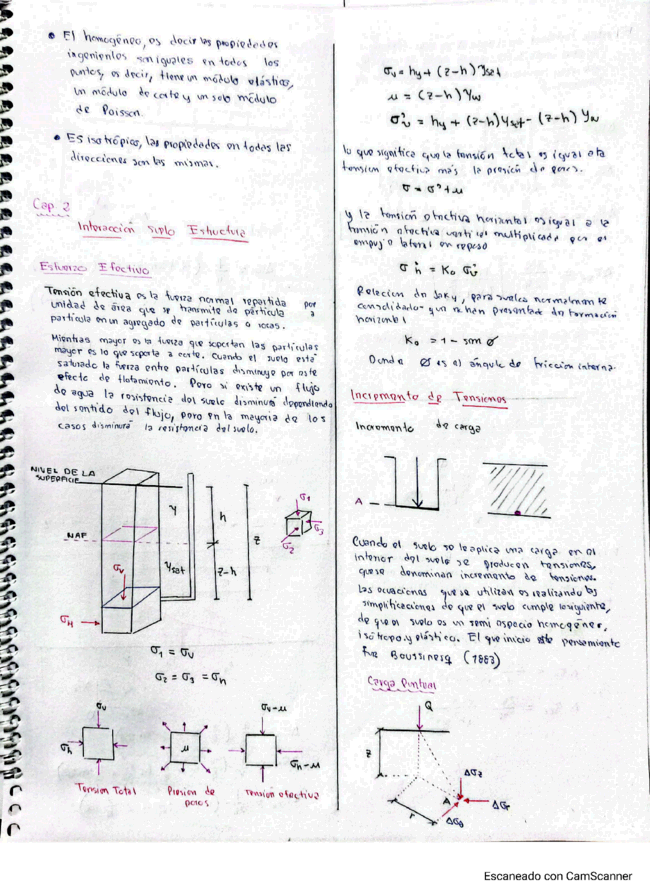 • El homogéneo, es decir las propiedades
ingenieriles son iguales en todos los
puntos, es decir, tiene un módulo elástico,
un módulo de corte y un solo módulo
de Poisson.
• Es isotrópico, las propiedades en todas las
direcciones son las mismas.
Cap. 2
Interacción Suelo Estructura
Esfuerzo Efectivo
Tensión efectiva es la fuerza normal repartida por
unidad de área que se transmite de partícula a
partícula en un agregado de partículas o rocas.
Mientras mayor es la fuerza que soportan las particulas
mayor es lo que soporta a corte. Cuando el suelo está
saturado la fuerza entre partículas disminuye por este
efecto de flotamiento. Pero si existe un flujo
de agua la resistencia del suelo disminuirá dependiendo
del sentido del flujo, pero en la mayoria de los
casos disminuirá la resistencia del suelo.
NIVEL DE LA
SUPERFICIE
NAF
γ
h
z
γsat
z-h
σv
σH
σ1
σ2
σ3
σ1 = σv
σ2 = σ3 = σh
σv
σh
Tension Total
μ
Presion de
poros
σv-μ
σh-μ
Tensión efectiva
σv = hγ + (z-h) γsat
μ = (z-h) γw
σ'v = hγ + (z-h) γsat - (z-h) γw
lo que significa que la tensión total es igual a la
tension efectiva más la presión de poros.
σ = σ' + μ
y la tensión efectiva horizontal es igual a la
tensión efectiva vertical multiplicada por el
empuje lateral en reposo
σ'h = Ko σ'v
Relacion de Jaky, para suelos normalmente
consolidados que no han presentado deformación
horizontal
Ko = 1 - sen ø
Donde ø es el ángulo de friccion interna.
Incremento de Tensiones
Incremento de carga
A
Cuando el suelo se le aplica una carga en el
interior del suelo se producen tensiones,
que se denominan incremento de tensiones.
Las ecuaciones que se utilizan es realizando las
simplificaciones de que el suelo cumple lo siguiente,
de que el suelo es un semi espacio homogéneo,
isótropo y elástico. El que inicio este pensamiento
fue Boussinesq (1883)
Carga Puntual
Q
z
r
A
Δσz
Δσr
Δσθ
Escaneado con CamScanner